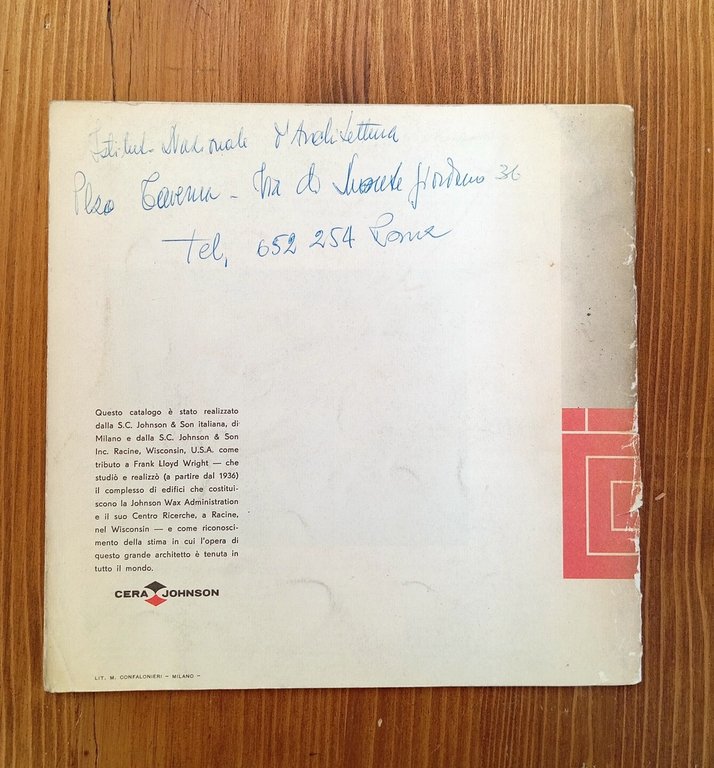 Istitut. Nazionale d'Architettura
Plzo Taverna - Via di Monte Giordano 36
Tel. 652 254 Roma
Questo catalogo è stato realizzato
dalla S.C. Johnson & Son italiana, di
Milano e dalla S.C. Johnson & Son
Inc. Racine, Wisconsin, U.S.A. come
tributo a Frank Lloyd Wright — che
studiò e realizzò (a partire dal 1936)
il complesso di edifici che costitui-
scono la Johnson Wax Administration
e il suo Centro Ricerche, a Racine,
nel Wisconsin — e come riconosci-
mento della stima in cui l'opera di
questo grande architetto è tenuta in
tutto il mondo.
CERA JOHNSON
LIT. M. CONFALONIERI - MILANO -